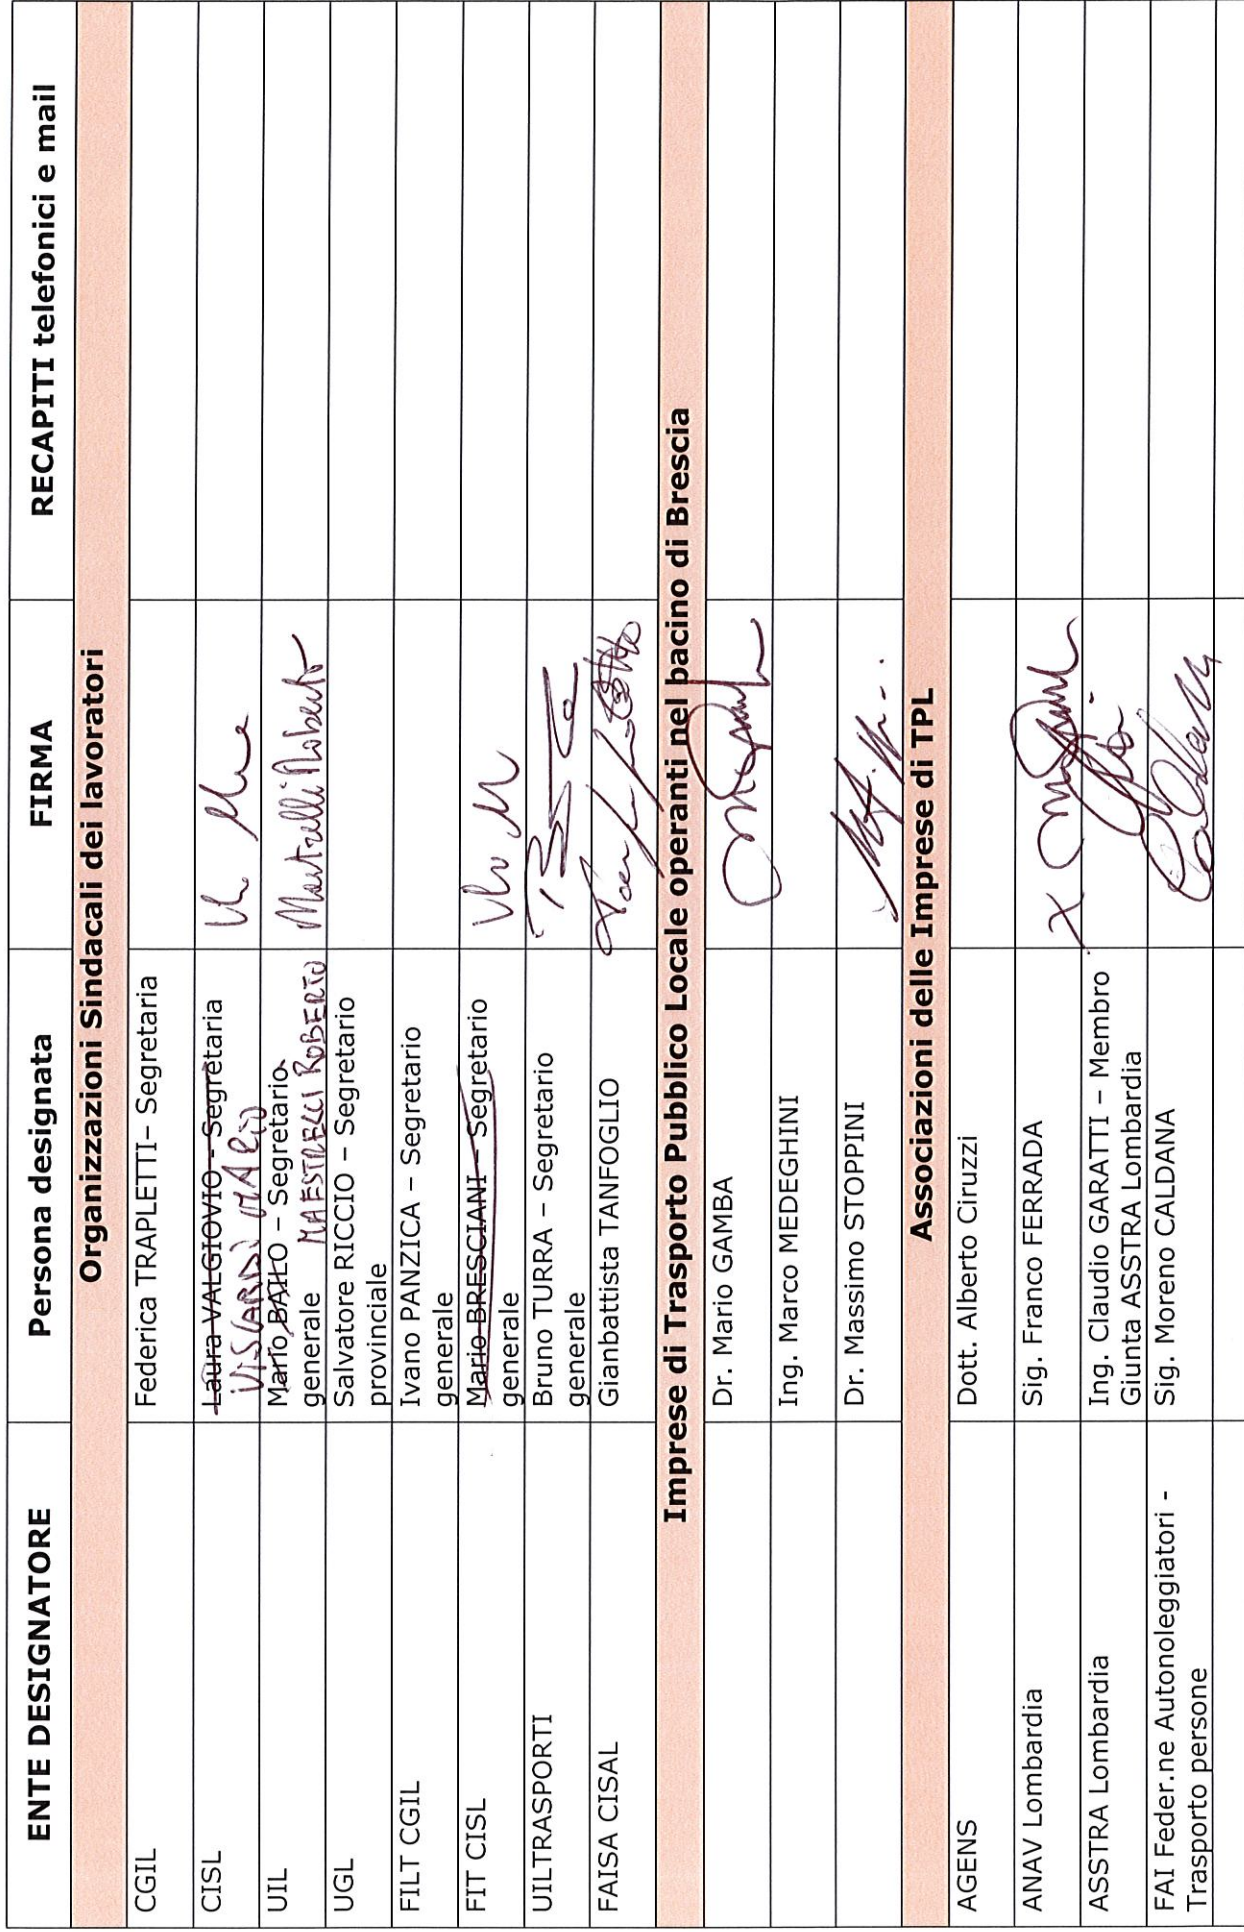 ENTE DESIGNATORE Persona designata FIRMA RECAPITI telefonici e mail
Organizzazioni Sindacali dei lavoratori
CGIL Federica TRAPLETTI– Segretaria
CISL Laura VALGIOVIO - Segretaria
VISCARDI MARIO
UIL Mario BAILO – Segretario
generale MAESTRELLI ROBERTO
UGL Salvatore RICCIO – Segretario
provinciale
FILT CGIL Ivano PANZICA – Segretario
generale
FIT CISL Mario BRESCIANI – Segretario
generale
UILTRASPORTI Bruno TURRA – Segretario
generale
FAISA CISAL Gianbattista TANFOGLIO
Imprese di Trasporto Pubblico Locale operanti nel bacino di Brescia
Dr. Mario GAMBA
Ing. Marco MEDEGHINI
Dr. Massimo STOPPINI
Associazioni delle Imprese di TPL
AGENS Dott. Alberto Ciruzzi
ANAV Lombardia Sig. Franco FERRADA X
ASSTRA Lombardia Ing. Claudio GARATTI – Membro
Giunta ASSTRA Lombardia
FAI Feder.ne Autonoleggiatori - Sig. Moreno CALDANA
Trasporto persone